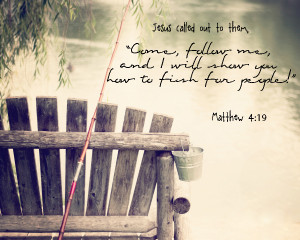 Jesus called out to them,
"Come, follow me,
and I will show you
how to fish for people!"
Matthew 4:19